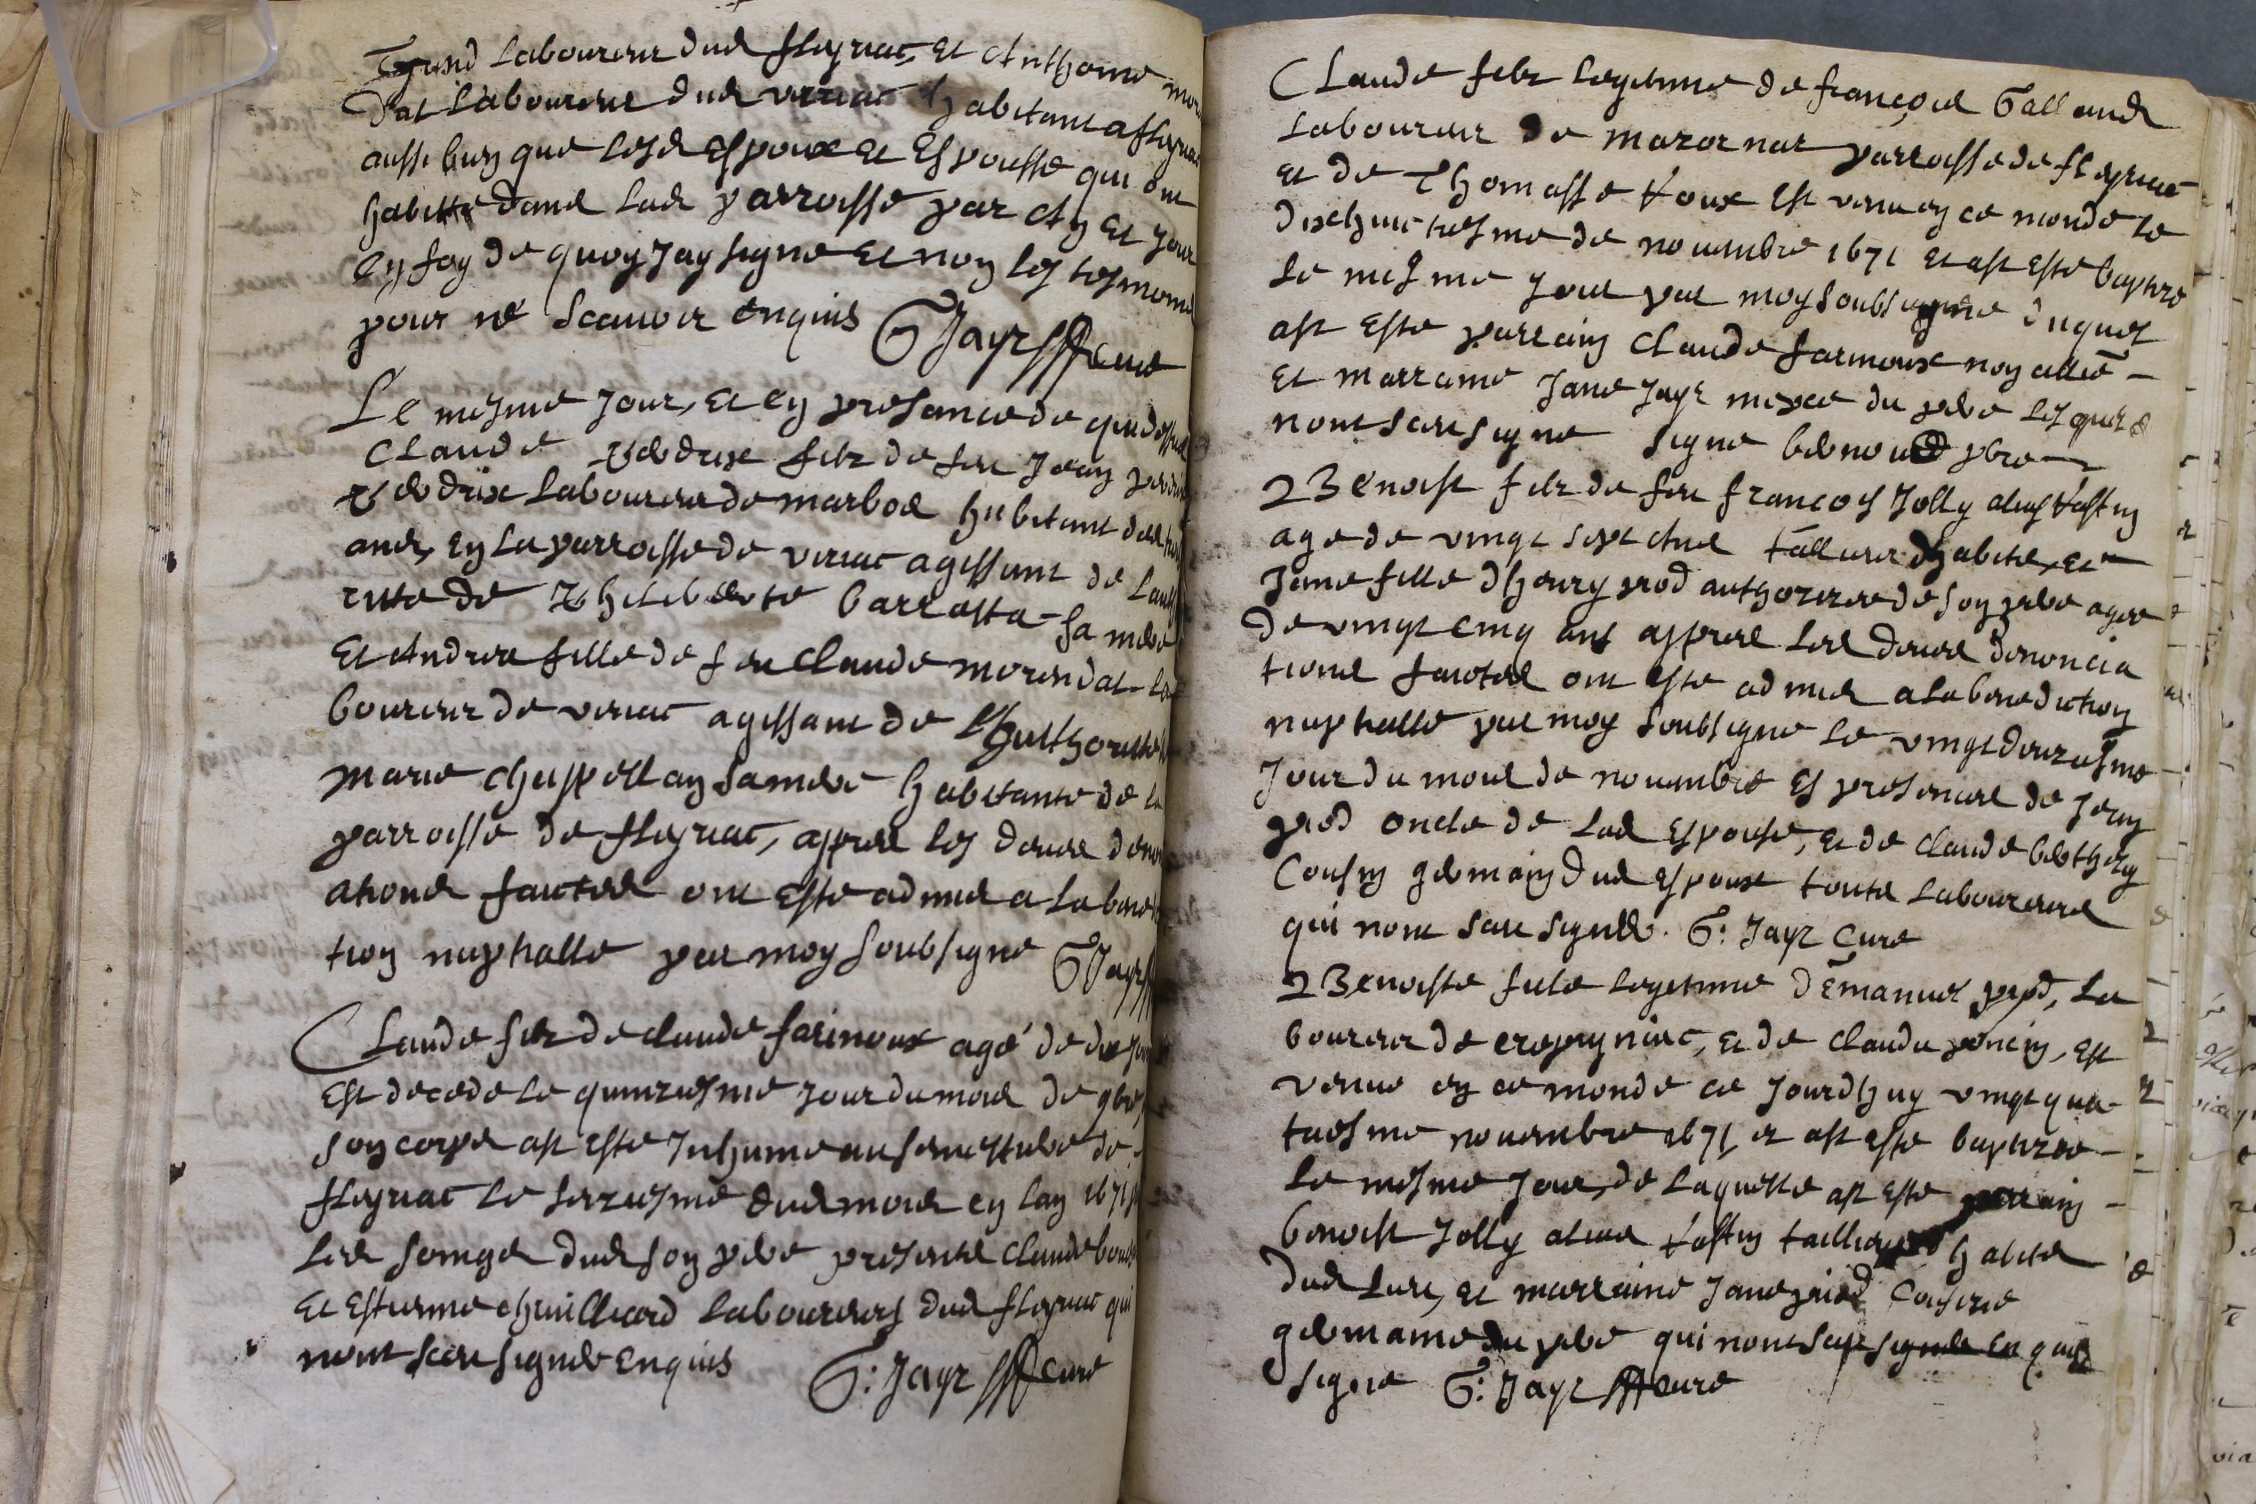 laboureur dud fleyriat, et Anthoine mor
dat laboureur dud viriat habitant a fleyriat
aussi bien que lesd espoux et espousse qui ont
habitté dans lad parroisse par an et jour
en foy de quoy jay signe et non les tesmoins
pour ne scauoir enquis G Jayr cure
Le mesme jour, et en presance de que dessus
Claude verdrix filz de feu Jean
laboureur de marbos habitant des
en la parroisse de viriat agissant de lautho
ritte de Philiberte barratta sa mere
et Andrea fille de feu Claude morendat la
boureur de viriat agissant de lauthoritte
marie chappellan sa mere habitante de la
parroisse de fleyriat, appres les denon
ations faictes ont este admis a la bene
tion nuptialle par moy soubsigne G Jayr
Claude filz de claude farinoux agé de
est decede le quinziesme jour du mois de 9bre
son corps ast este inhume au semettiere de
fleyriat le seiziesme dud mois en lan 1671
les soings dud son pere presents claude
et estienne chuilleard laboureurs dud fleyriat qui
nont sceu signer enquis G: Jayr cure
Claude filz legitime de françois Galland
laboureur de mazornat parroisse de fleyriat
et de Thomasse est venu en ce monde le
dixhuictiesme de nouembre 1671 et ast este baptize
le mesme jour par moy soubsigne duquel
ast este parrain Claude farinoux non allié
et marraine Jane Jayr du pere lesquels
nont sceu signe signe pbre
Benoist filz de feu francois Jolly alias
age de vingt sept ans tallieur dhabits, et
Jane fille dhenry prod authorizee de son pere agee
de vingt cinq ans appres les denoncia
tions faictes ont este admis a la benediction
nuptialle par moy soubsigne le vingtdeuziesme
jour du mois de nouembre es presences de Jean
prod oncle de lad espouse, et de claude berthely
cousin germain dud espoux touts laboureurs
qui nont sceu signer. G: Jayr cure
Benoiste fille legitime d'Emanuel prod, la
boureur de cropignat, et de clauda poncin, est
venue en ce monde ce jourdhuy vingt qua
triesme nouembre 1671 et ast este baptizee
le mesme jour, de laquelle ast este parrain
benoist Jolly alias taillieur dhabits
dud lieu, et marraine Jane prod cousine
germaine du pere qui nont sceu signer enquis
signe G: Jayr cure